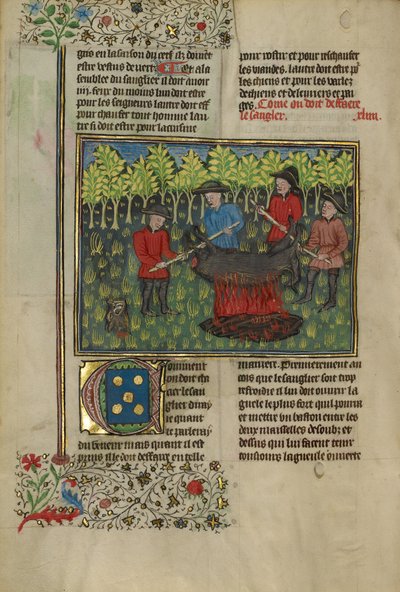 gris en la saison du cerf si doiuēt
estre vestus de vert. Et a la
semblee du sanglier il doit auoir
iiij. feux du moins lun doit estre
pour les seigneurs lautre doit estre
pour chaufer tout homme lau
tre si doit estre pour la cuisine
pour rostir et pour reschaufer
les viandes. lautre doit estre pour
les chiens et pour les varlez
de chiens et de leuriers et pa
ges. Come on doit deffaere
le sanglier. xliiii.
Comment
lon doit cha
cer le san
glier diray
ie quant
ie parleray
du veneur mais quant il est
prins il le doit deffaire en telle
maniere. Premierement an
cois que le sanglier soit trop
refroidie il lui doit ouurir la
guele le plus fort quil pourra
et mettre un baston entre les
deux maisselles desoubz et
dessus qui lui facent tenir
tousiours la gueule ouuerte